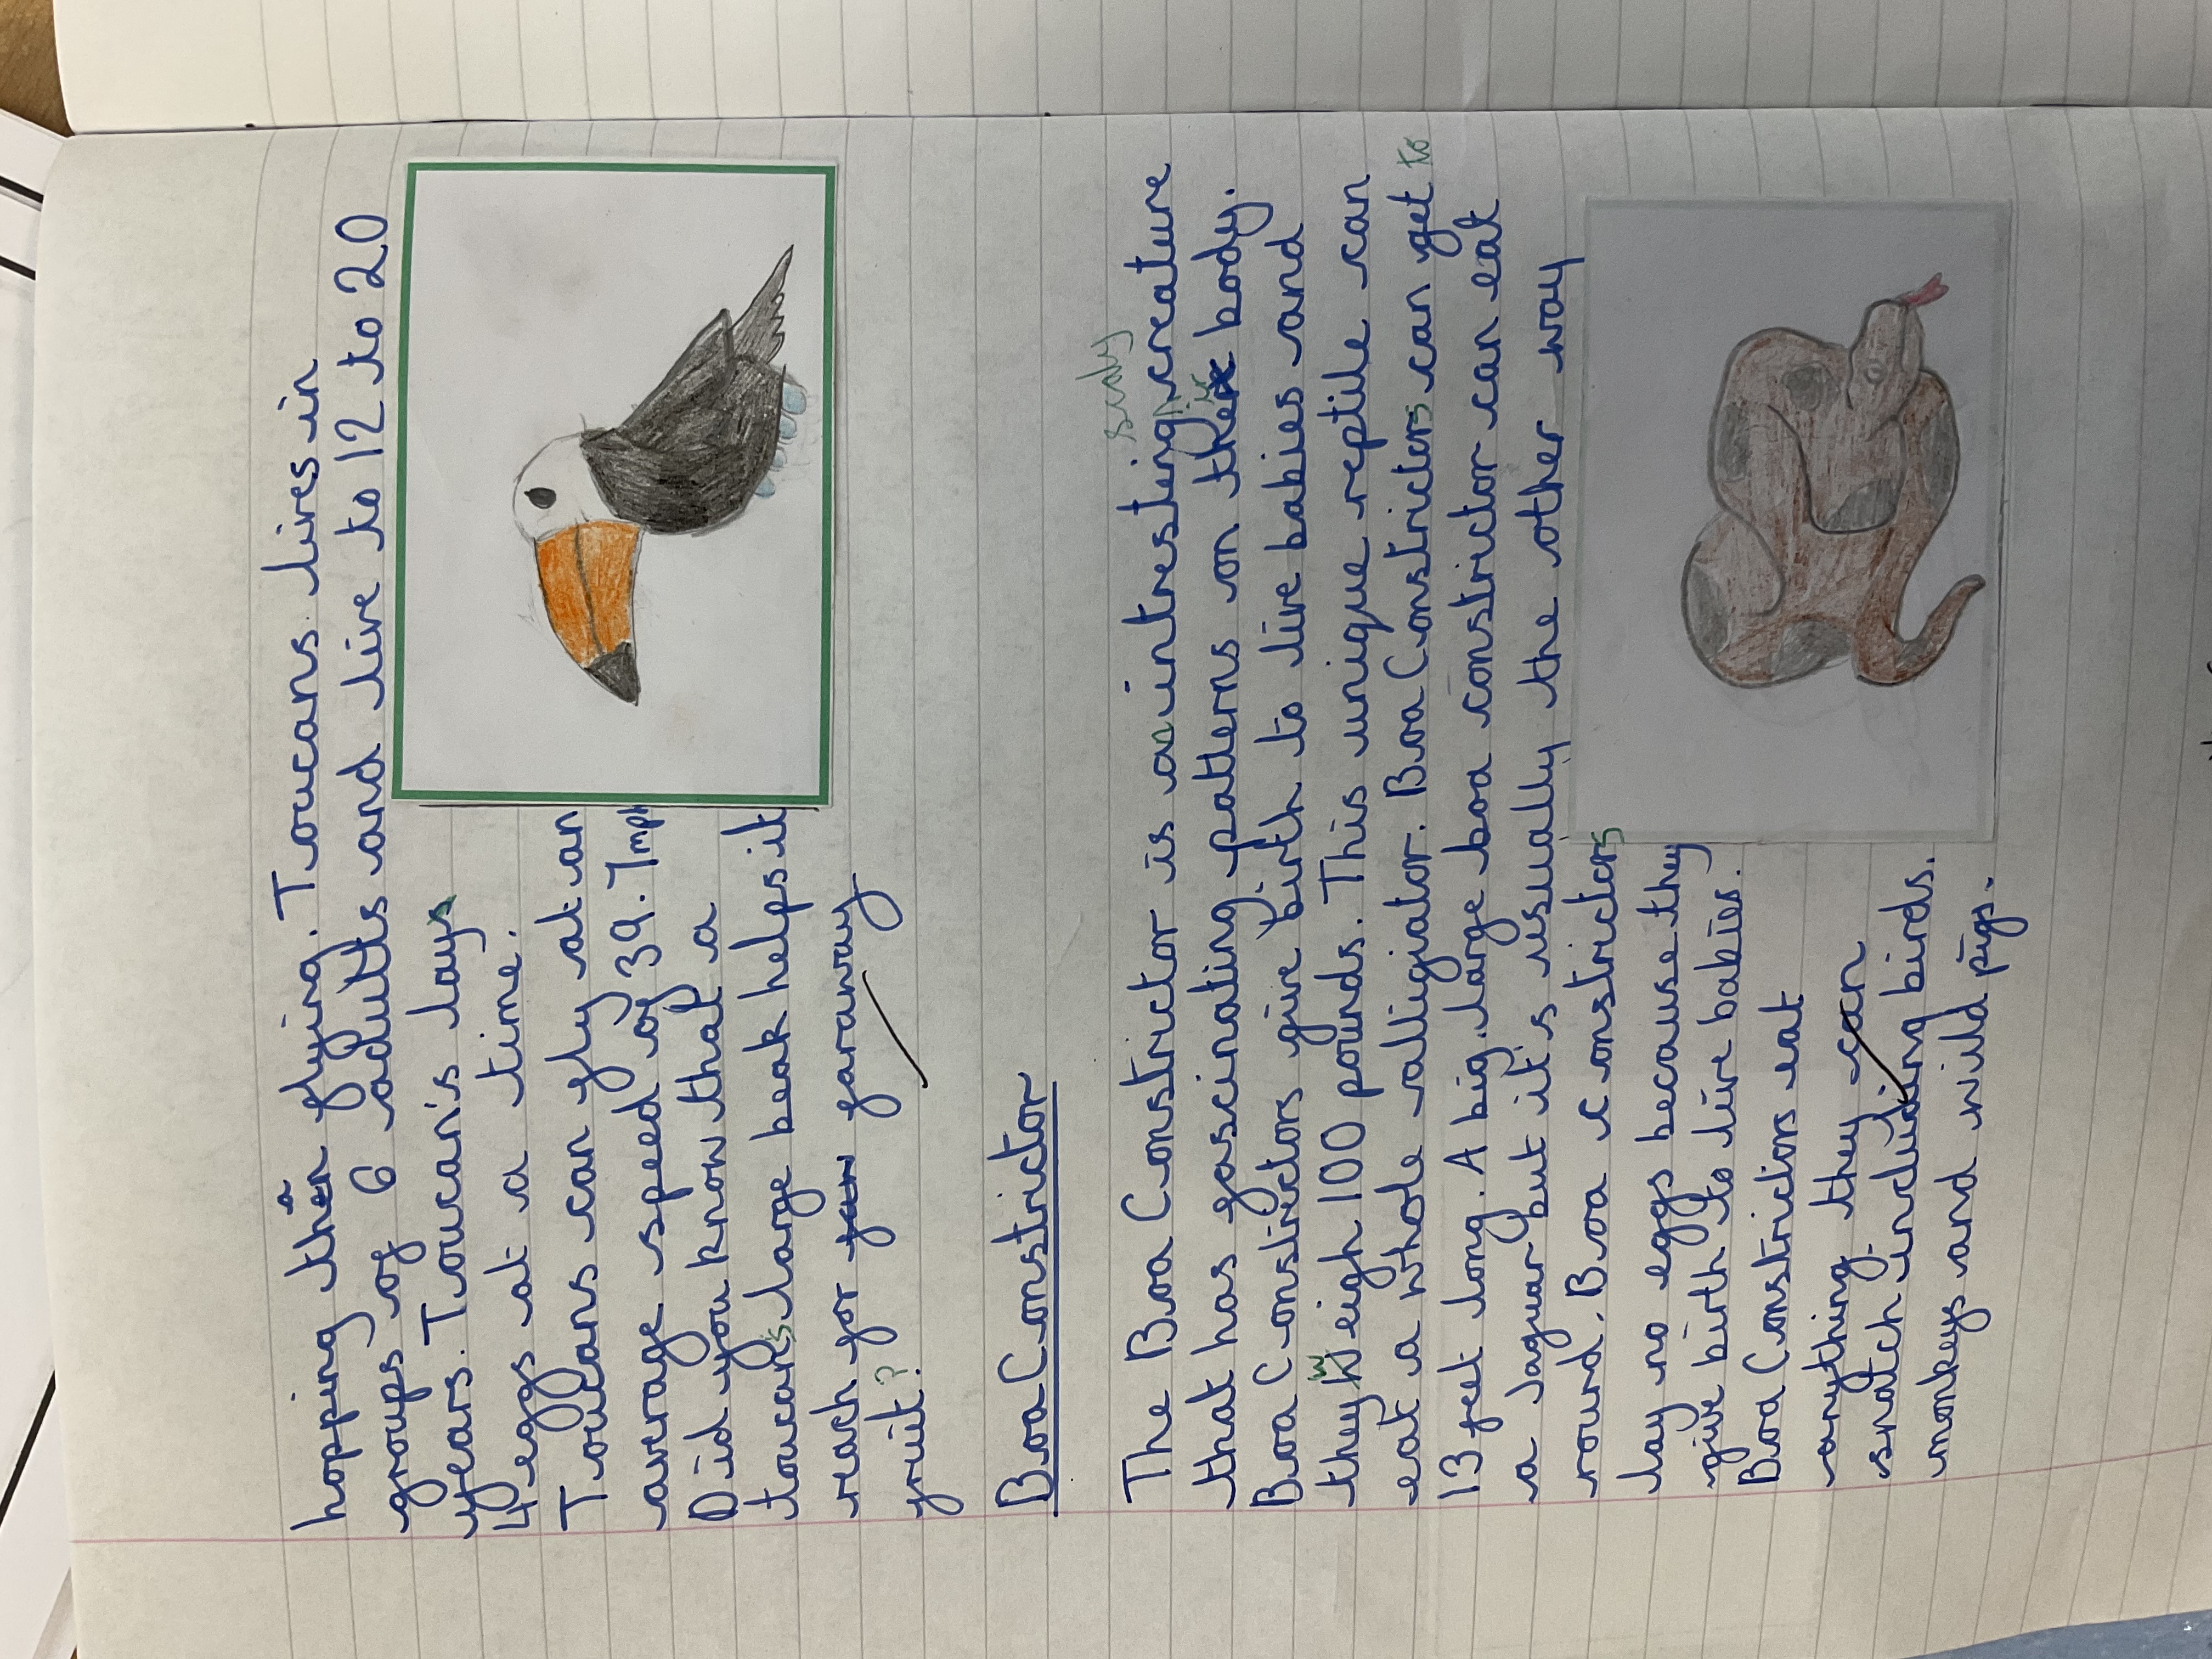 hopping than flying. Toucans lives in
groups of 6 adults and live to 12 to 20
years. Toucan's lays
4 eggs at a time.
Toucans can fly at an
average speed of 39.7mph
Did you know that a
toucan's large beak helps it
reach for faraway
fruit?
Boa Constrictor
The Boa Constrictor is a intresting, creature
that has fascinating patterns on their body.
Boa Constrictors give birth to live babies and
they weigh 100 pounds. This unique reptile can
eat a whole alligiator. Boa Constricters can get to
13 feet long. A big, large boa constrictor can eat
a Jaguar but it's usually the other way
round. Boa constricters
lay no eggs because they
give birth to live babies.
Boa Constrictors eat
anything they can
snatch including birds.
monkeys and wild pigs.